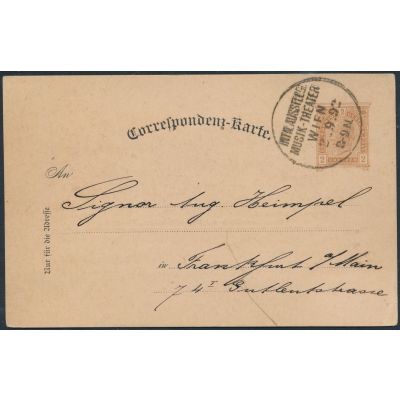 INTN. AUSSTELLG.
MUSIK-THEATER
WIEN
2 9.92
8-9N
2 2
Correspondenz-Karte.
An
Signor Aug. Heimpel
in Frankfurt a/Main
74 I Gutleutstrasse
Nur für die Adresse